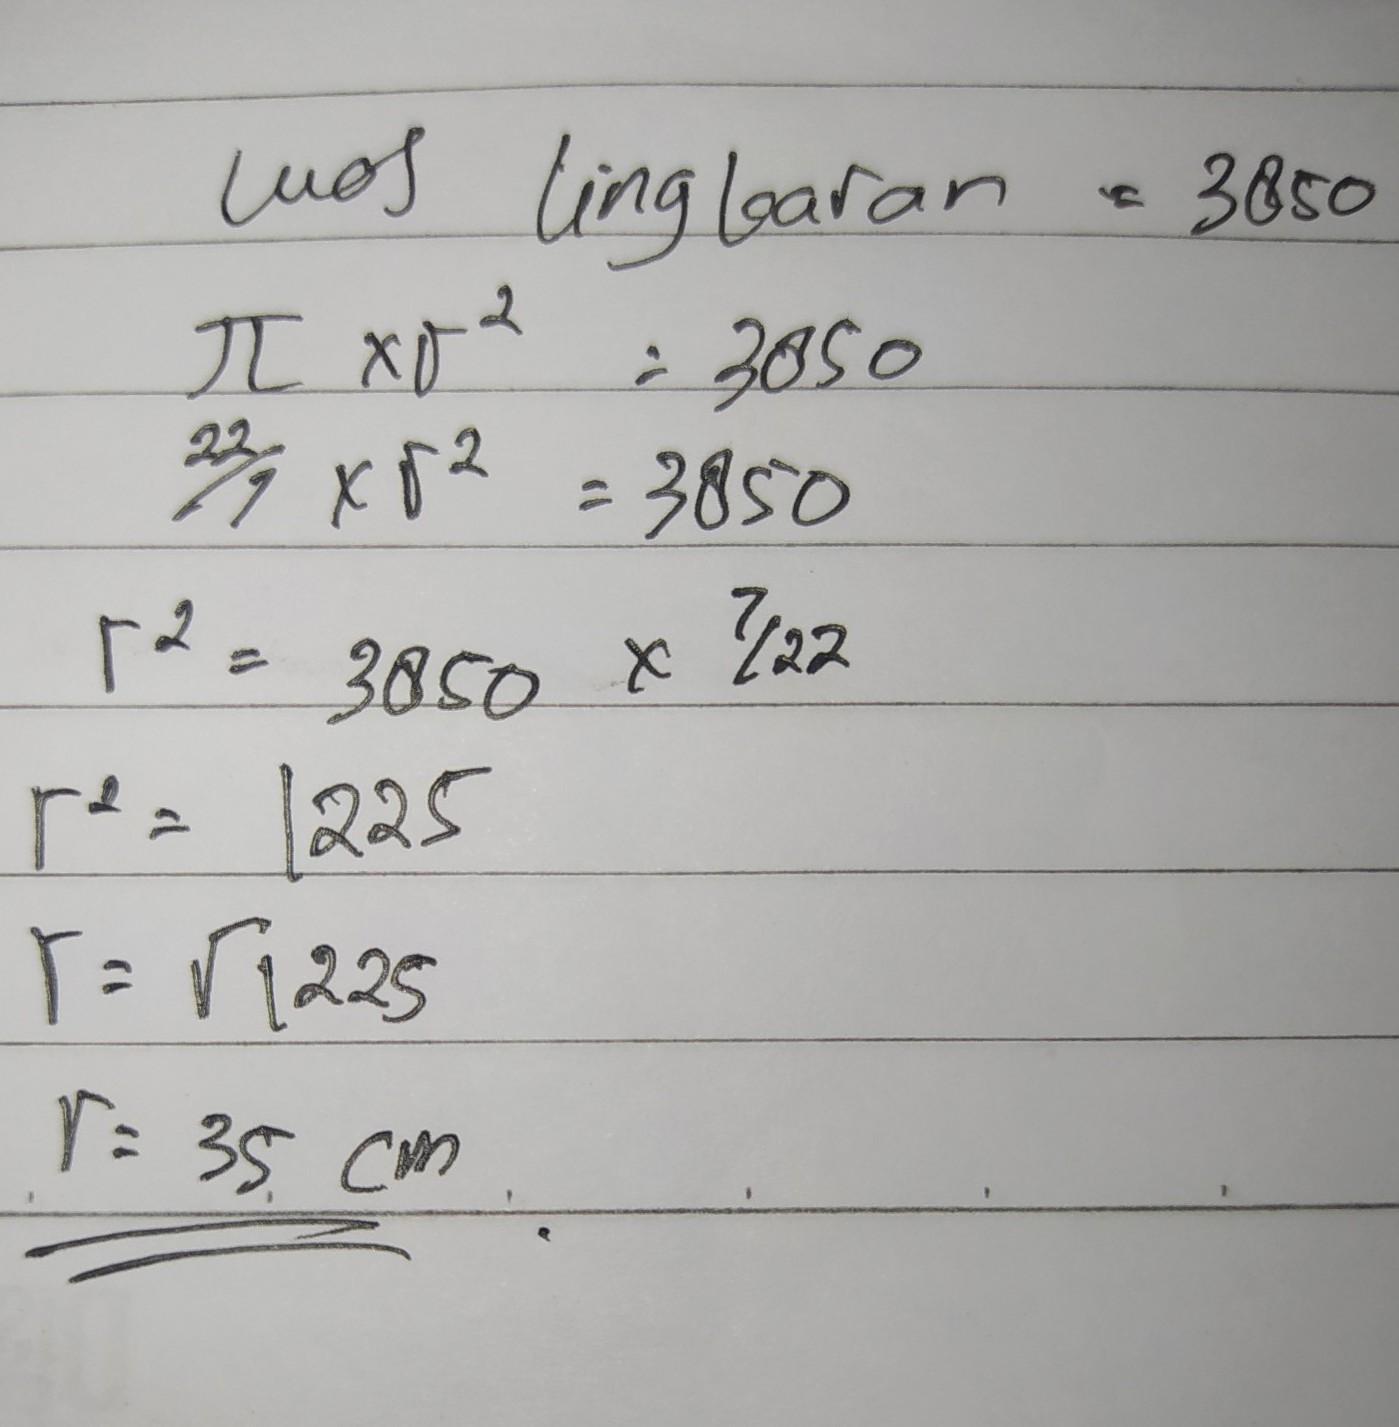 Luas lingkaran = 3850
π × r² = 3850
22/7 × r² = 3850
r² = 3850 × 7/22
r² = 1225
r = √1225
r = 35 cm